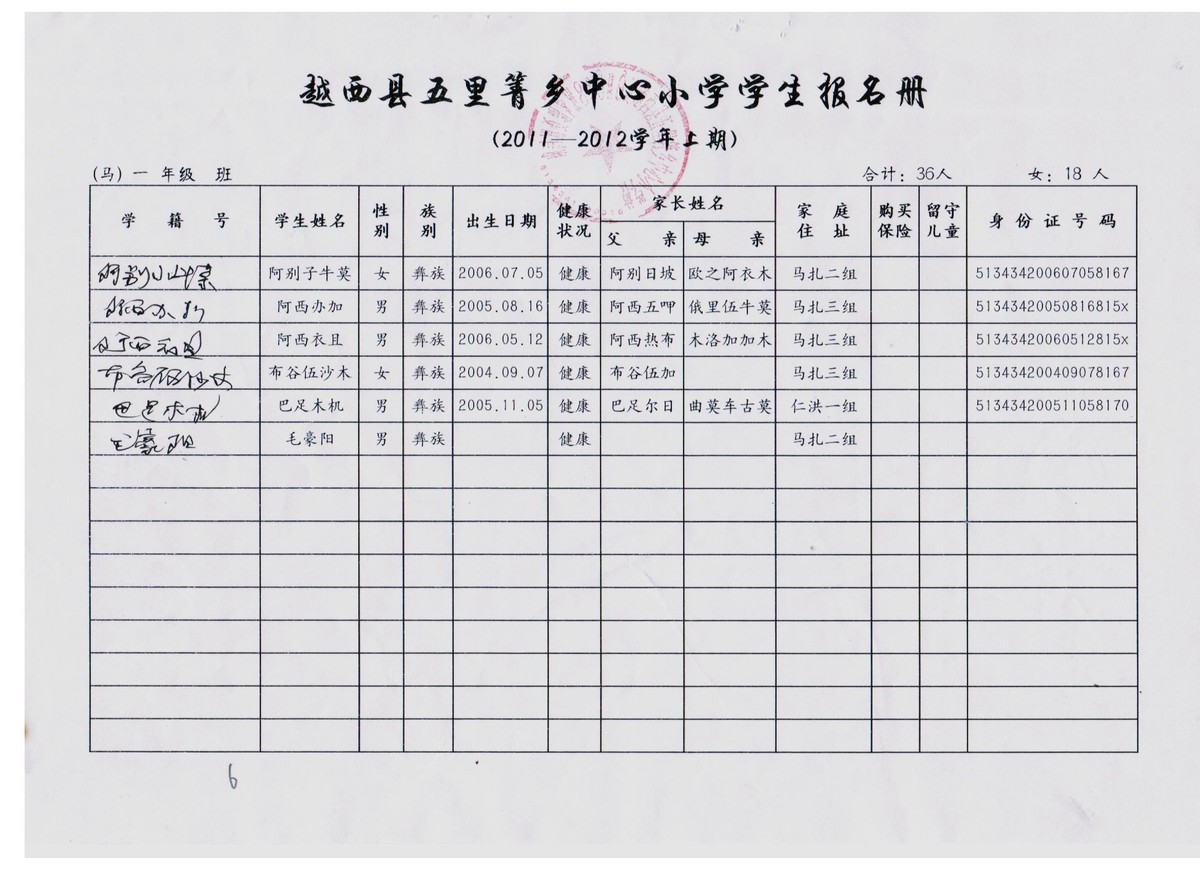 越西县五里箐乡中心小学学生报名册
(2011—2012学年上期)
(马) 一 年级 班 合计: 36人 女: 18 人
学 籍 号 学生姓名 性别 族别 出生日期 健康状况 家长姓名 家庭住址 购买保险 留守儿童 身份证号码
父 亲 母 亲
阿别子牛莫 女 彝族 2006.07.05 健康 阿别日坡 欧之阿衣木 马扎二组 513434200607058167
阿西办加 男 彝族 2005.08.16 健康 阿西五呷 俄里伍牛莫 马扎三组 51343420050816815x
阿西衣且 男 彝族 2006.05.12 健康 阿西热布 木洛加加木 马扎三组 51343420060512815x
布谷伍沙木 女 彝族 2004.09.07 健康 布谷伍加 马扎三组 513434200409078167
巴足木机 男 彝族 2005.11.05 健康 巴足尔日 曲莫车古莫 仁洪一组 513434200511058170
毛豪阳 男 彝族 健康 马扎二组
6